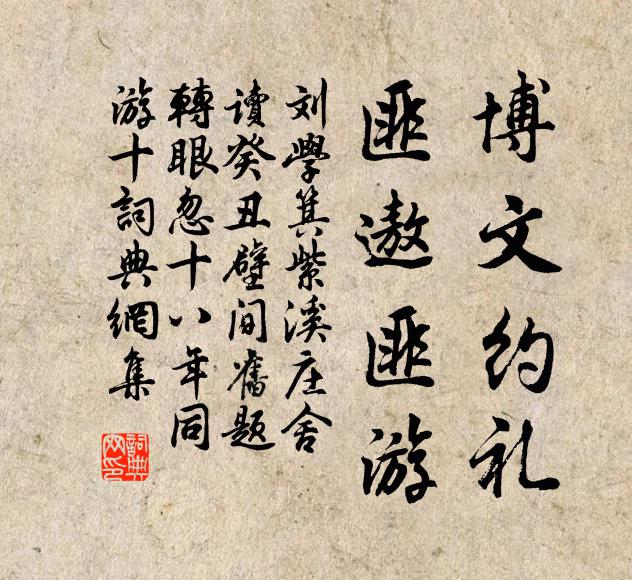 博文约礼
匪遨匪游
刘學箕紫溪庄舍
读癸丑壁间舊题
轉眼忽十八年同
游十詞典網集
詞典网印